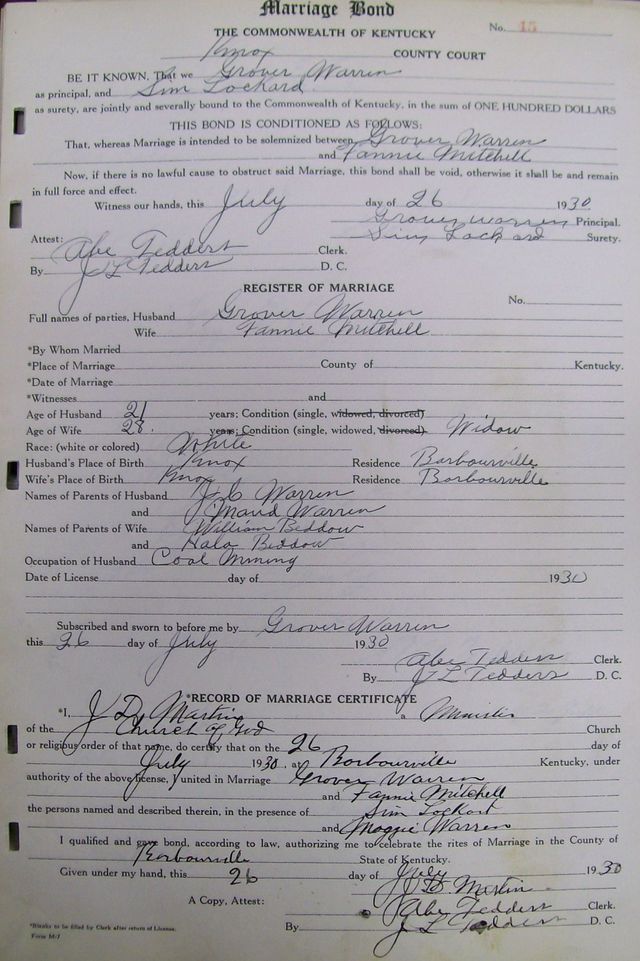 Marriage Bond
THE COMMONWEALTH OF KENTUCKY No. 15
Knox COUNTY COURT
BE IT KNOWN, That we Grover Warren
as principal, and Sim Lockard
as surety, are jointly and severally bound to the Commonwealth of Kentucky, in the sum of ONE HUNDRED DOLLARS
THIS BOND IS CONDITIONED AS FOLLOWS:
That, whereas Marriage is intended to be solemnized between Grover Warren
and Fannie Mitchell
Now, if there is no lawful cause to obstruct said Marriage, this bond shall be void, otherwise it shall be and remain
in full force and effect.
Witness our hands, this July day of 26 1930
Grover Warren Principal.
Sim Lockard Surety.
Attest:
Abe Tedders Clerk.
By J L Tedders D. C.
REGISTER OF MARRIAGE
No.
Full names of parties, Husband Grover Warren
Wife Fannie Mitchell
*By Whom Married
*Place of Marriage County of Kentucky.
*Date of Marriage
*Witnesses and
Age of Husband 21 years; Condition (single, widowed, divorced)
Age of Wife 28. years; Condition (single, widowed, divorced) Widow
Race: (white or colored) White
Husband's Place of Birth Knox Residence Barbourville
Wife's Place of Birth Knox Residence Barbourville
Names of Parents of Husband J C Warren
and Maud Warren
Names of Parents of Wife William Beddow
and Hala Beddow
Occupation of Husband Coal Mining
Date of License day of 1930
Subscribed and sworn to before me by Grover Warren
this 26 day of July 1930
Abe Tedders Clerk.
By J L Tedders D. C.
*RECORD OF MARRIAGE CERTIFICATE
*I, J D Martin a Minister
of the Church of God Church
or religious order of that name, do certify that on the 26 day of
July 1930, at Barbourville Kentucky, under
authority of the above license, I united in Marriage Grover Warren
and Fannie Mitchell
the persons named and described therein, in the presence of Sim Lockard
and Maggie Warren
I qualified and gave bond, according to law, authorizing me to celebrate the rites of Marriage in the County of
Barbourville State of Kentucky.
Given under my hand, this 26 day of July 1930
J D Martin
A Copy, Attest: Abe Tedders Clerk.
By J L Tedders D. C.
*Blanks to be filled by Clerk after return of License.
Form M-7